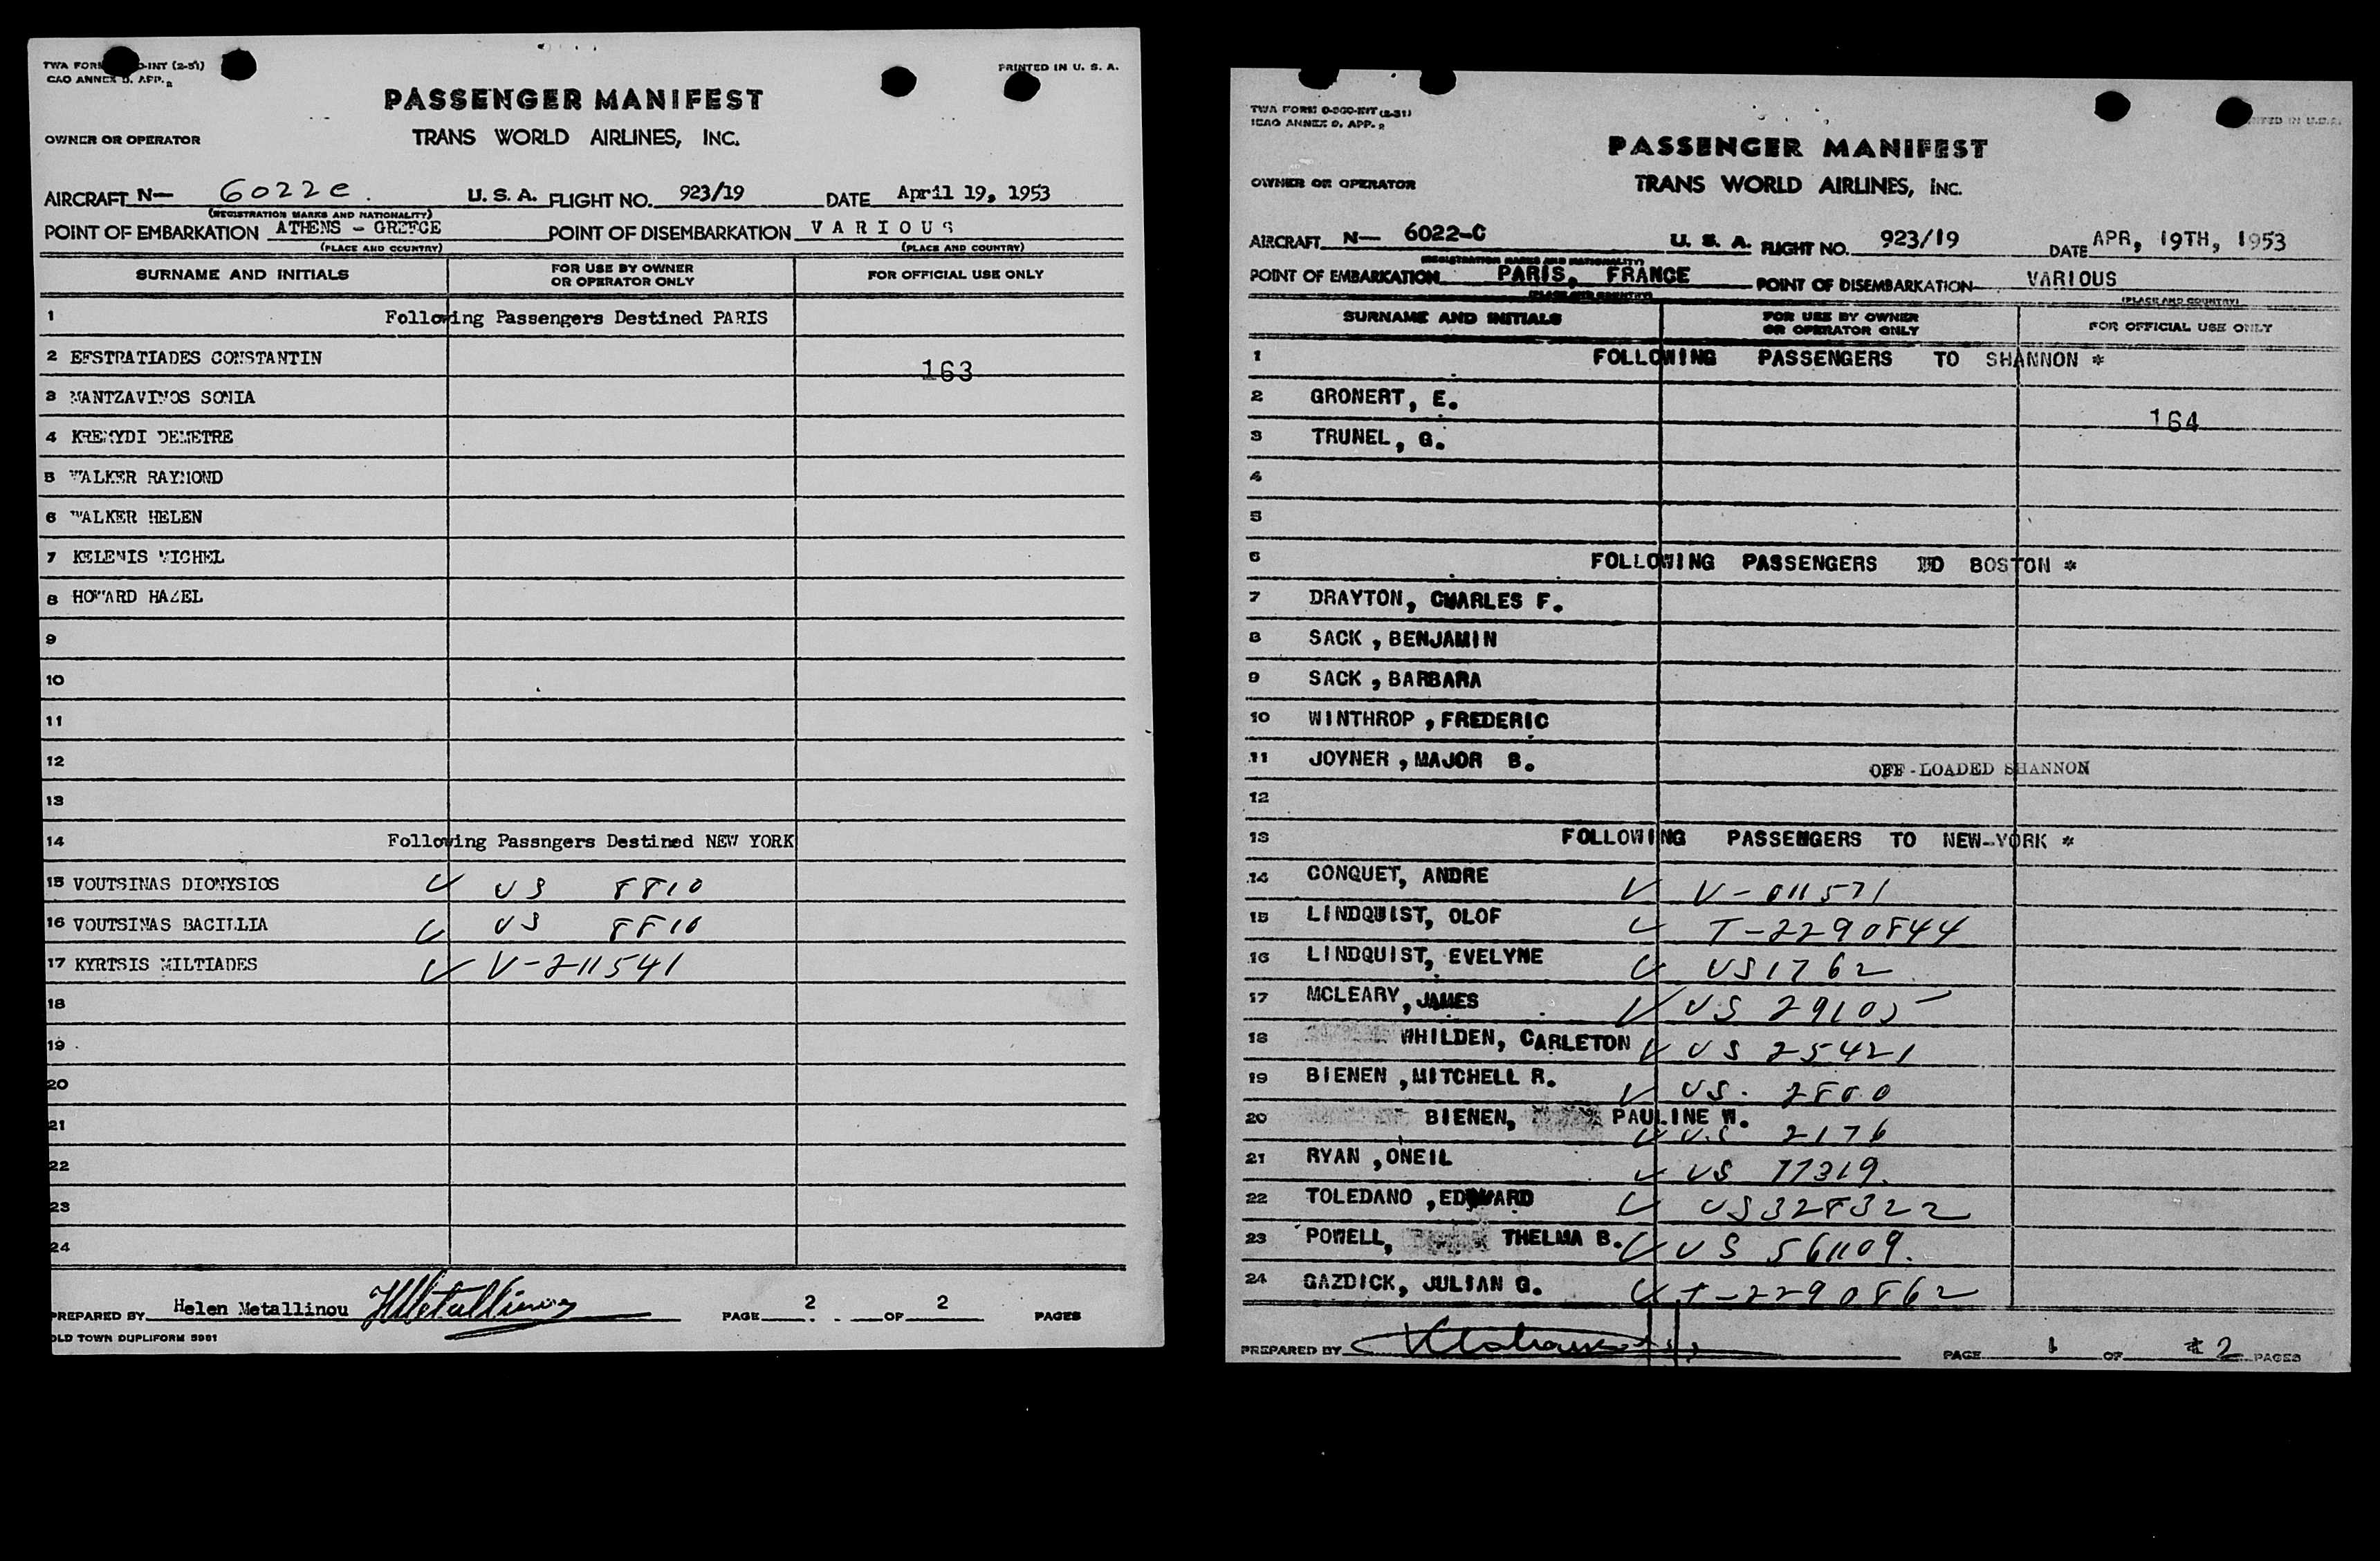 TWA FORM O-INT (2-51)
CAO ANNEX D. APP. 2
PRINTED IN U. S. A.
PASSENGER MANIFEST
OWNER OR OPERATOR
TRANS WORLD AIRLINES, INC.
AIRCRAFT N— 6022c. U. S. A. FLIGHT NO. 923/19 DATE April 19, 1953
(REGISTRATION MARKS AND NATIONALITY)
POINT OF EMBARKATION ATHENS - GREECE POINT OF DISEMBARKATION V A R I O U S
(PLACE AND COUNTRY) (PLACE AND COUNTRY)
SURNAME AND INITIALS FOR USE BY OWNER OR OPERATOR ONLY FOR OFFICIAL USE ONLY
1 Following Passengers Destined PARIS
2 EFSTRATIADES CONSTANTIN 163
3 MANTZAVINOS SONIA
4 KREMYDI DEMETRE
5 WALKER RAYMOND
6 WALKER HELEN
7 KELENIS MICHEL
8 HOWARD HAZEL
9
10
11
12
13
14 Following Passngers Destined NEW YORK
15 VOUTSINAS DIONYSIOS ✓ US 8810
16 VOUTSINAS BACILLIA ✓ US 8810
17 KYRTSIS MILTIADES ✓ V-211541
18
19
20
21
22
23
24
PREPARED BY Helen Metallinou HMetallinou PAGE 2 OF 2 PAGES
OLD TOWN DUPLIFORM 5981
TWA FORM O-300-INT (2-51)
ICAO ANNEX D. APP. 2
PRINTED IN U.S.A.
PASSENGER MANIFEST
OWNER OR OPERATOR
TRANS WORLD AIRLINES, INC.
AIRCRAFT N— 6022-C U. S. A. FLIGHT NO. 923/19 DATE APR, 19TH, 1953
(REGISTRATION MARKS AND NATIONALITY)
POINT OF EMBARKATION PARIS, FRANCE POINT OF DISEMBARKATION VARIOUS
(PLACE AND COUNTRY) (PLACE AND COUNTRY)
SURNAME AND INITIALS FOR USE BY OWNER OR OPERATOR ONLY FOR OFFICIAL USE ONLY
1 FOLLOWING PASSENGERS TO SHANNON *
2 GRONERT, E.
164
3 TRUNEL, G.
4
5
6 FOLLOWING PASSENGERS TO BOSTON *
7 DRAYTON, CHARLES F.
8 SACK , BENJAMIN
9 SACK , BARBARA
10 WINTHROP , FREDERIC
11 JOYNER , MAJOR B. OFF-LOADED SHANNON
12
13 FOLLOWING PASSENGERS TO NEW-YORK *
14 CONQUET, ANDRE ✓ V-011571
15 LINDQUIST, OLOF ✓ T-2290844
16 LINDQUIST, EVELYNE ✓ US1762
17 MCLEARY, JAMES ✓ US 29105
18 WHILDEN, CARLETON ✓ US 25421
19 BIENEN , MITCHELL R. ✓ US. 2800
20 BIENEN, PAULINE W. ✓ US 2176
21 RYAN , ONEIL ✓ US 77319.
22 TOLEDANO , EDWARD ✓ US328322
23 POWELL, THELMA B. ✓ US 561109.
24 GAZDICK, JULIAN G. ✓ T-2290862
PREPARED BY PAGE 1 OF 2 PAGES